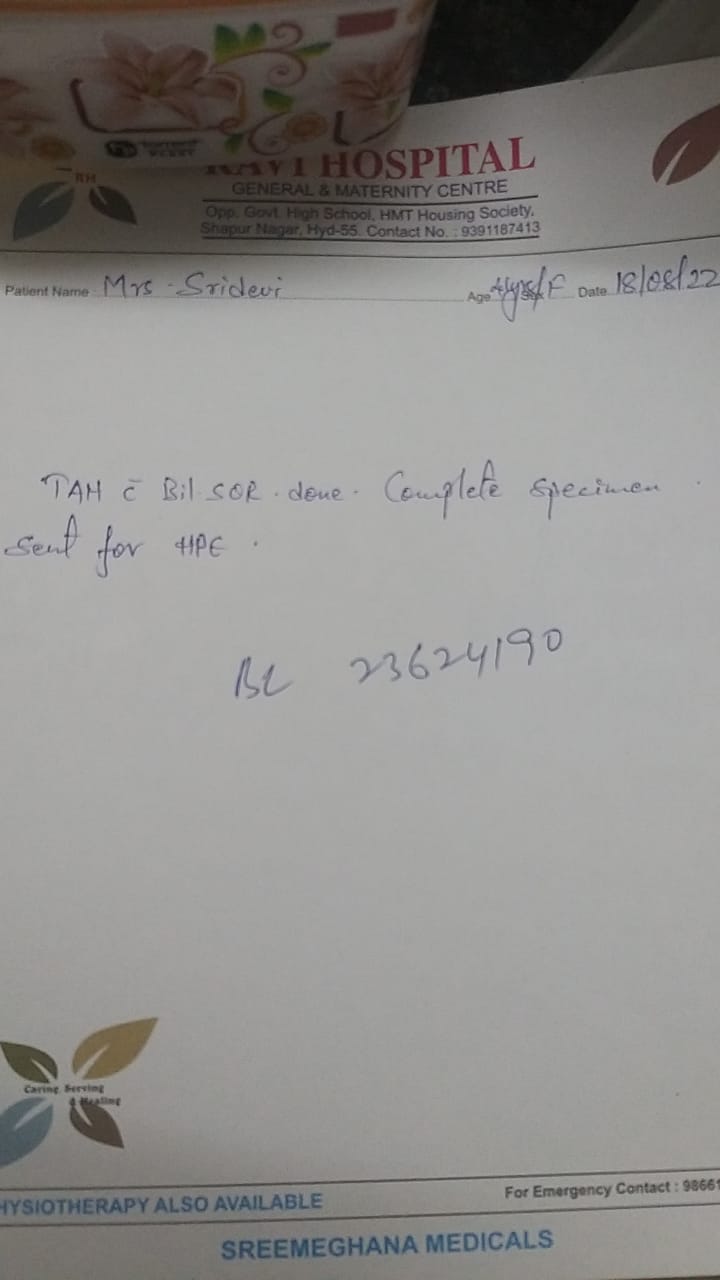 RH
HOSPITAL
GENERAL & MATERNITY CENTRE
Opp. Govt. High School, HMT Housing Society,
Shapur Nagar, Hyd-55. Contact No. : 9391187413
Patient Name Mrs - Sridevi Age /F Date 18/08/22
TAH c̄ Bil. SOR. done. Complete Specimen.
sent for HPE.
BL 23624190
Caring, Serving
& Healing
HYSIOTHERAPY ALSO AVAILABLE
For Emergency Contact : 9866
SREEMEGHANA MEDICALS